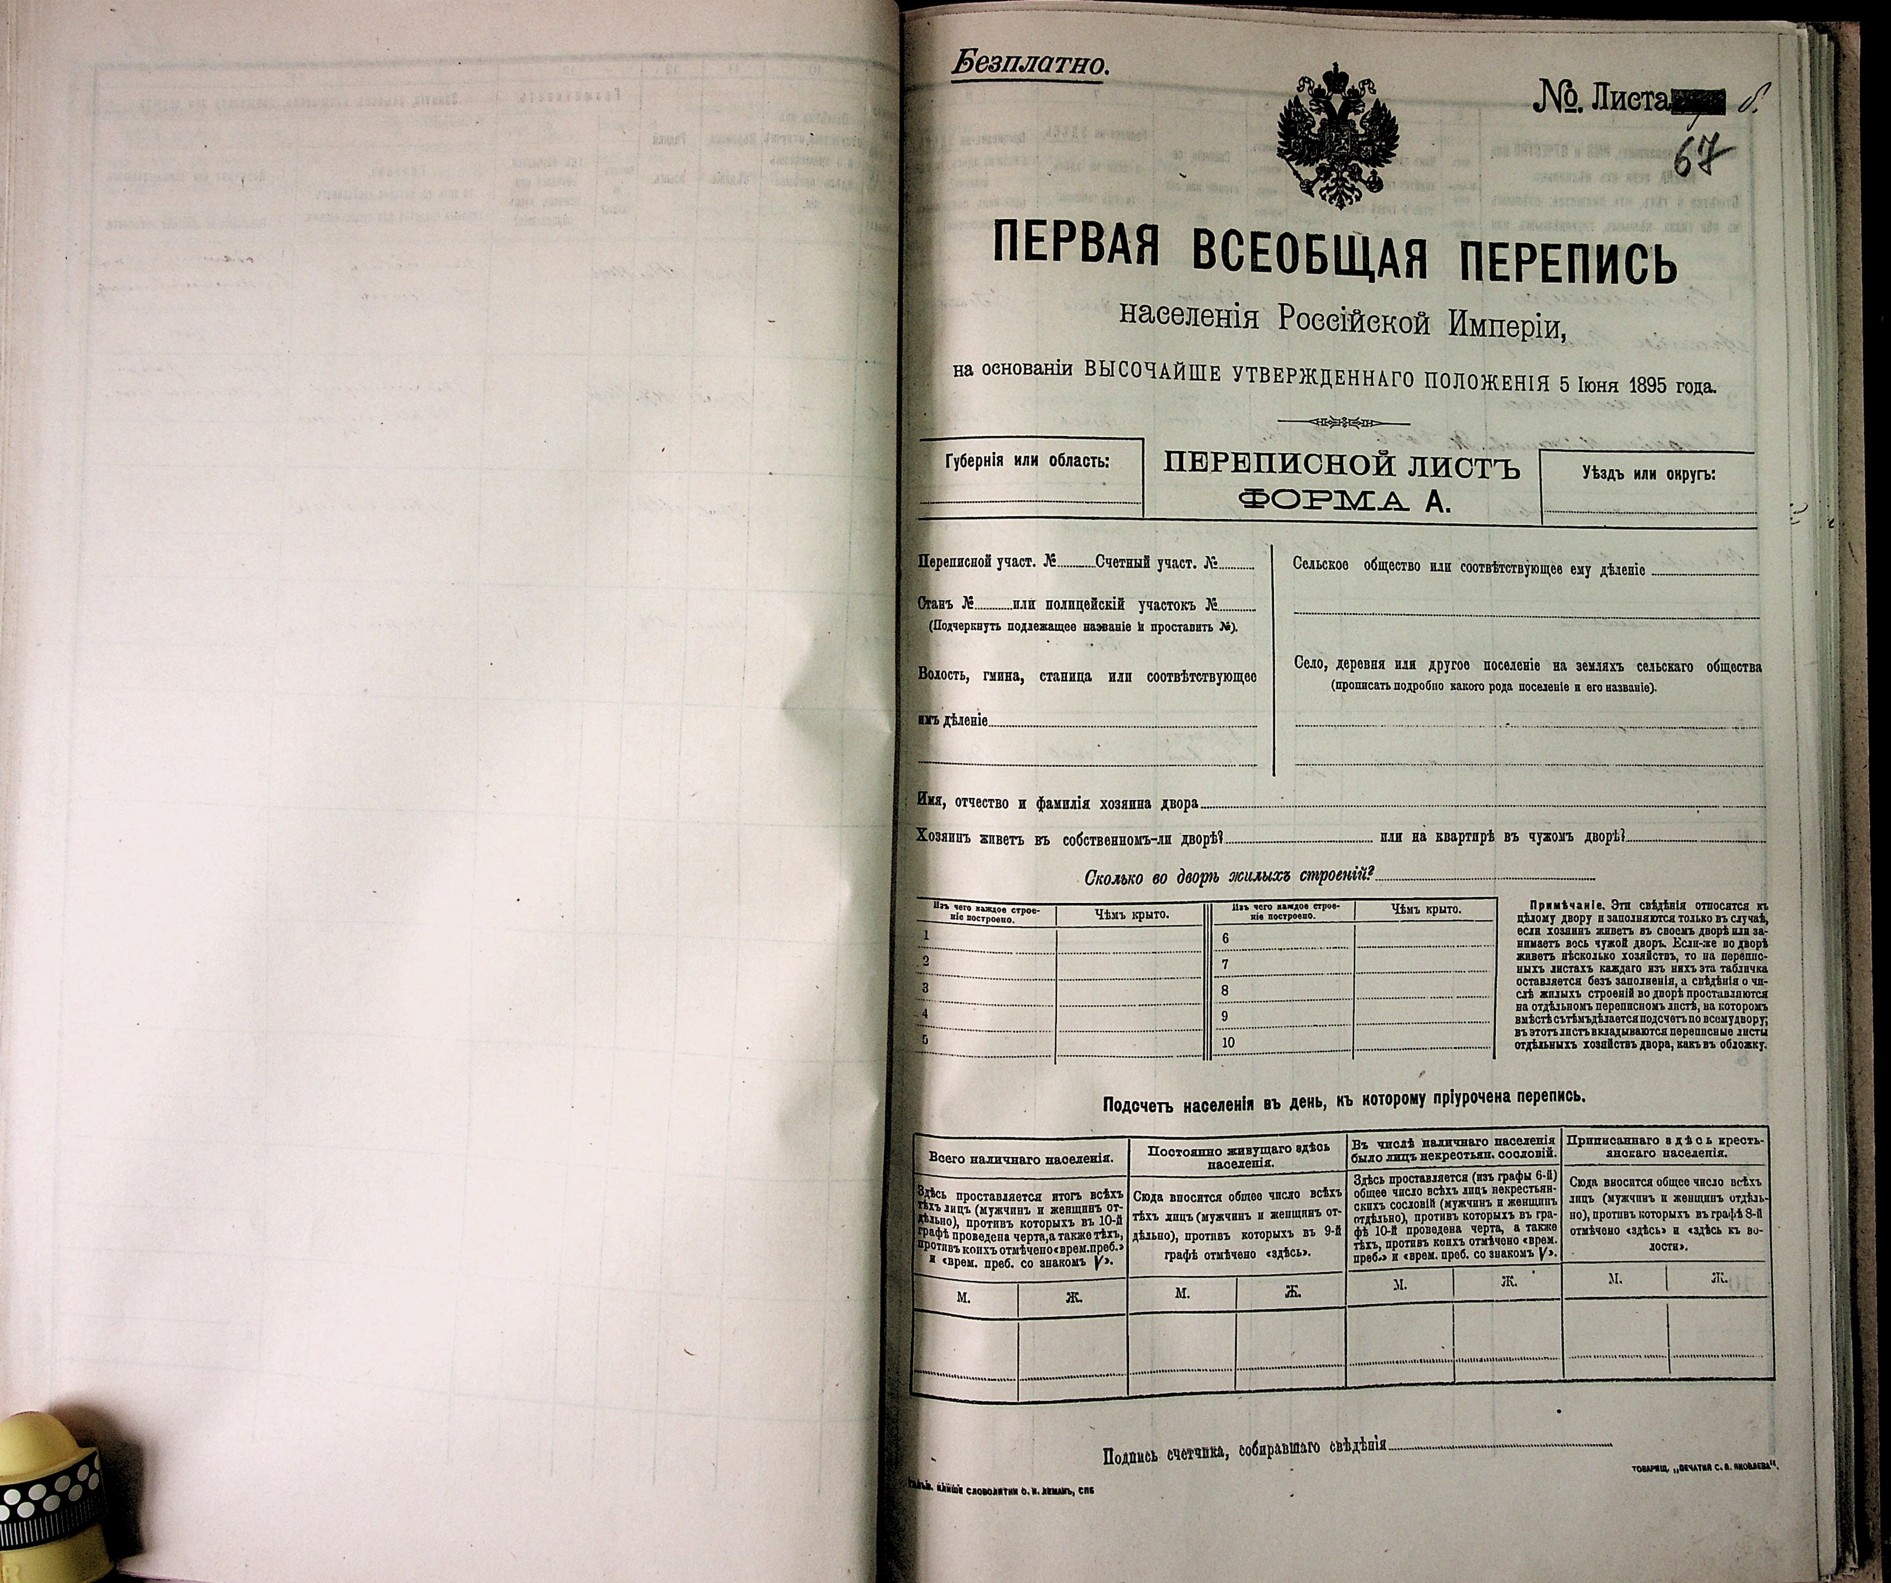 Безплатно.
№. Листа 8.
67
ПЕРВАЯ ВСЕОБЩАЯ ПЕРЕПИСЬ
населенія Россійской Имперіи,
на основаніи ВЫСОЧАЙШЕ УТВЕРЖДЕННАГО ПОЛОЖЕНІЯ 5 Іюня 1895 года.
Губернія или область:
ПЕРЕПИСНОЙ ЛИСТЪ
ФОРМА А.
Уѣздъ или округъ:
Переписной участ. № Счетный участ. №
Станъ № или полицейскій участокъ №
(Подчеркнуть подлежащее названіе и проставить №).
Волость, гмина, станица или соотвѣтствующее
имъ дѣленіе
Сельское общество или соотвѣтствующее ему дѣленіе
Село, деревня или другое поселеніе на земляхъ сельскаго общества
(прописать подробно какого рода поселеніе и его названіе).
Имя, отчество и фамилія хозяина двора
Хозяинъ живетъ въ собственномъ-ли дворѣ? или на квартирѣ въ чужомъ дворѣ?
Сколько во дворѣ жилыхъ строеній?
Изъ чего каждое строе-
ніе построено.
Чѣмъ крыто.
Изъ чего каждое строе-
ніе построено.
Чѣмъ крыто.
1
2
3
4
5
6
7
8
9
10
Примѣчаніе. Эти свѣдѣнія относятся къ
цѣлому двору и заполняются только въ случаѣ,
если хозяинъ живетъ въ своемъ дворѣ или за-
нимаетъ весь чужой дворъ. Если-же во дворѣ
живетъ нѣсколько хозяйствъ, то на перепис-
ныхъ листахъ каждаго изъ нихъ эта табличка
оставляется безъ заполненія, а свѣдѣнія о чи-
слѣ жилыхъ строеній во дворѣ проставляются
на отдѣльномъ переписномъ листѣ, на которомъ
вмѣстѣ съ тѣмъ дѣлается подсчетъ по всему двору;
въ этотъ листъ вкладываются переписные листы
отдѣльныхъ хозяйствъ двора, какъ въ обложку.
Подсчетъ населенія въ день, къ которому пріурочена перепись.
Всего наличнаго населенія.
Здѣсь проставляется итогъ всѣхъ
тѣхъ лицъ (мужчинъ и женщинъ от-
дѣльно), противъ которыхъ въ 10-й
графѣ проведена черта, а также тѣхъ,
противъ коихъ отмѣчено «врем. преб.»
и «врем. преб. со знакомъ V».
М. Ж.
Постоянно живущаго здѣсь
населенія.
Сюда вносится общее число всѣхъ
тѣхъ лицъ (мужчинъ и женщинъ от-
дѣльно), противъ которыхъ въ 9-й
графѣ отмѣчено «здѣсь».
М. Ж.
Въ числѣ наличнаго населенія
было лицъ некрестьян. сословій.
Здѣсь проставляется (изъ графы 6-й)
общее число всѣхъ лицъ некрестьян-
скихъ сословій (мужчинъ и женщинъ
отдѣльно), противъ которыхъ въ гра-
фѣ 10-й проведена черта, а также
тѣхъ, противъ коихъ отмѣчено «врем.
преб.» и «врем. преб. со знакомъ V».
М. Ж.
Приписаннаго здѣсь кресть-
янскаго населенія.
Сюда вносится общее число всѣхъ
лицъ (мужчинъ и женщинъ отдѣль-
но), противъ которыхъ въ графѣ 8-й
отмѣчено «здѣсь» и «здѣсь къ во-
лости».
М. Ж.
Подпись счетчика, собиравшаго свѣдѣнія
СЛОВОЛИТНИ О. И. ЛЕМАНЪ, СПБ
ТОВАРИЩ. „ПЕЧАТНЯ С. П. ЯКОВЛЕВА“.